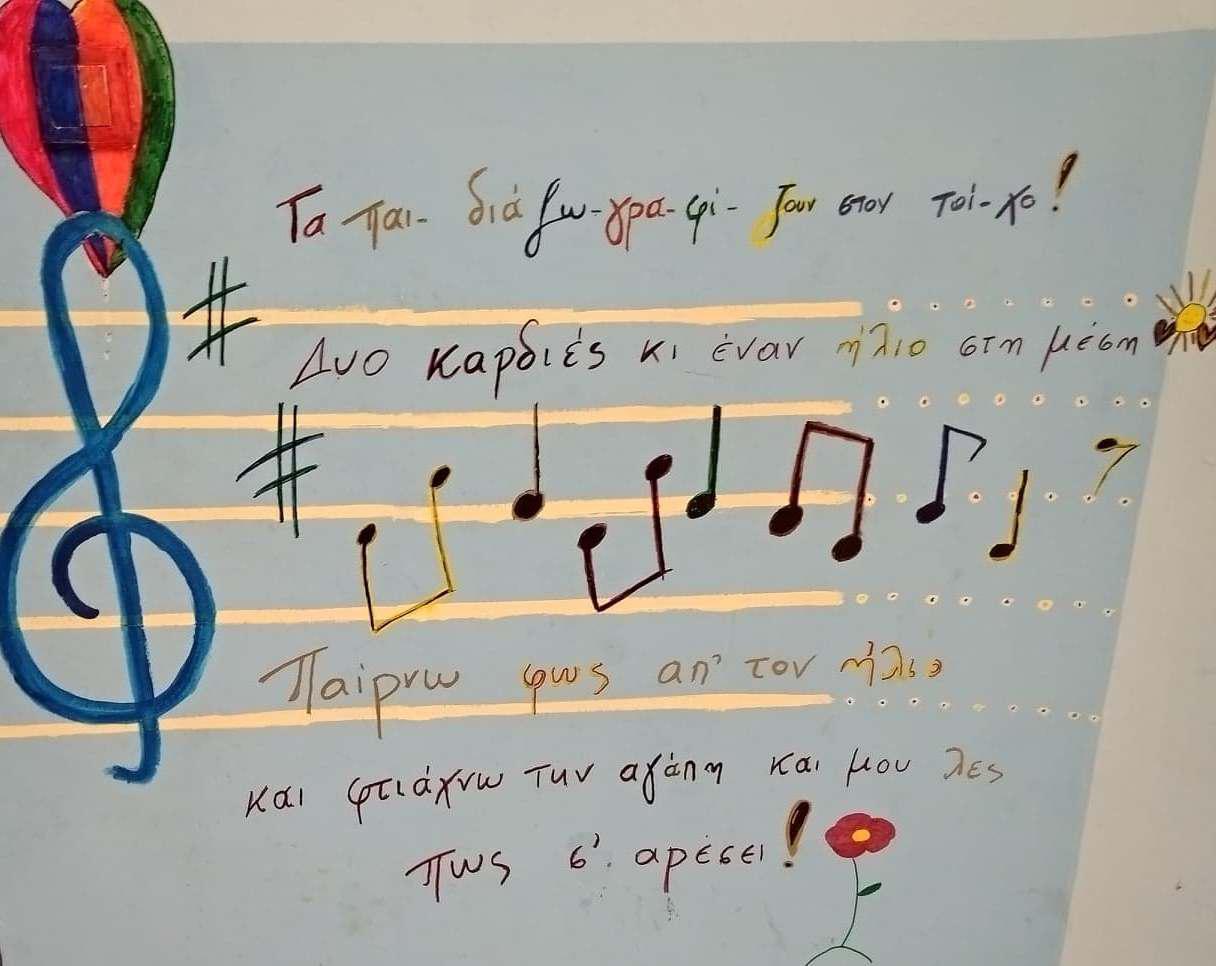 Τα παι- διά ζω-γρα-φί- ζουν στον τοί-χο!
Δυο καρδιές κι έναν ήλιο στη μέση
Παίρνω φως απ' τον ήλιο
και φτιάχνω την αγάπη και μου λες
πως σ'. αρέσει!